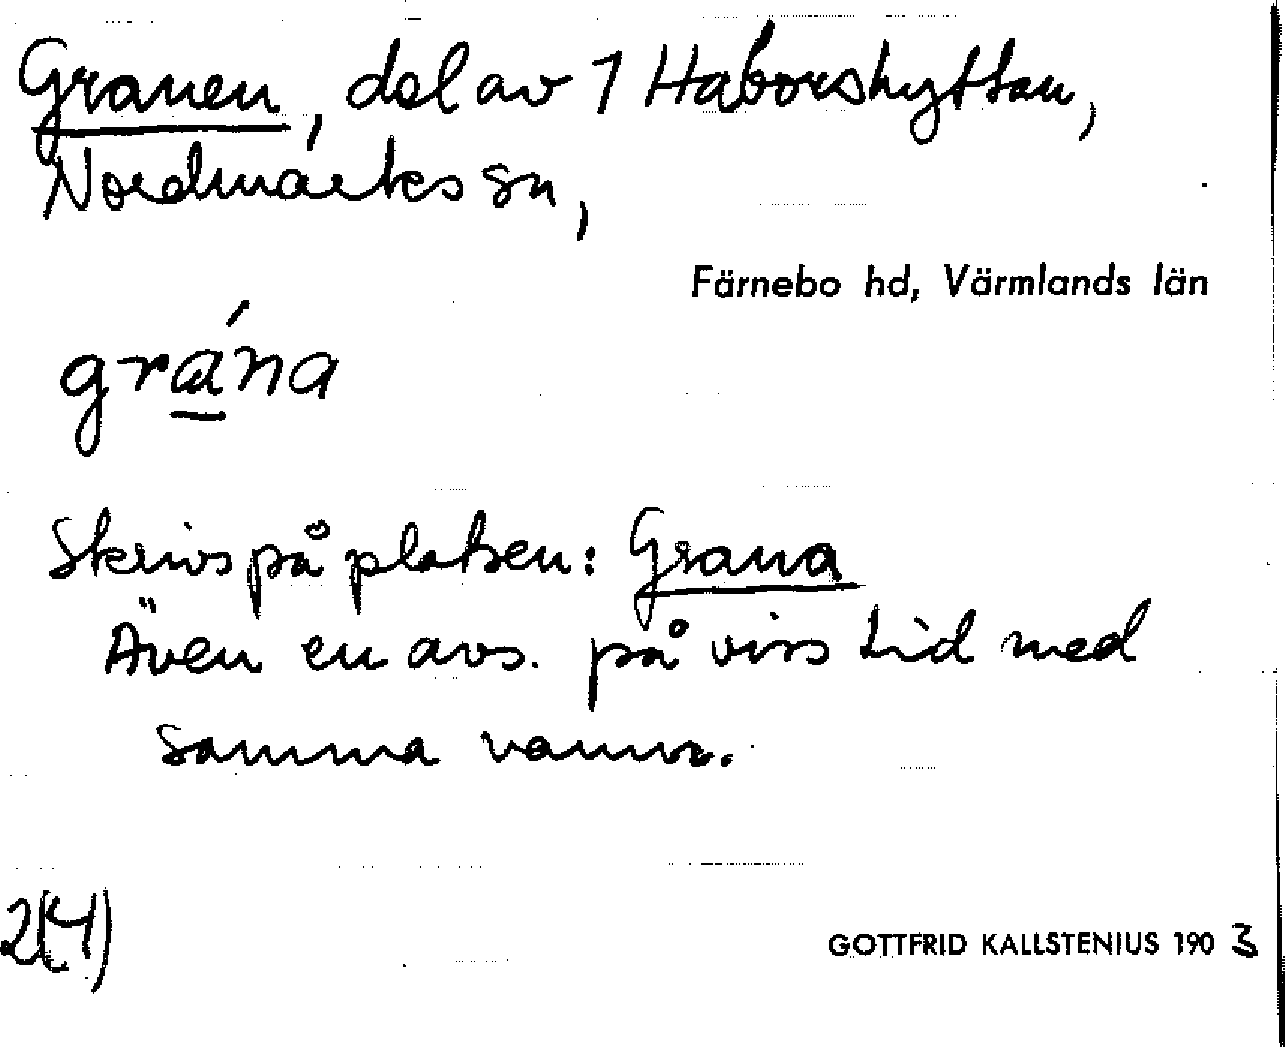 Granen, del av 1 Håborshyttan,
Nordmarks sn,
Färnebo hd, Värmlands län
grána
Skrivs på platsen: Grana
Även en avs. på viss tid med
samma namn.
2(4)
GOTTFRID KALLSTENIUS 1903